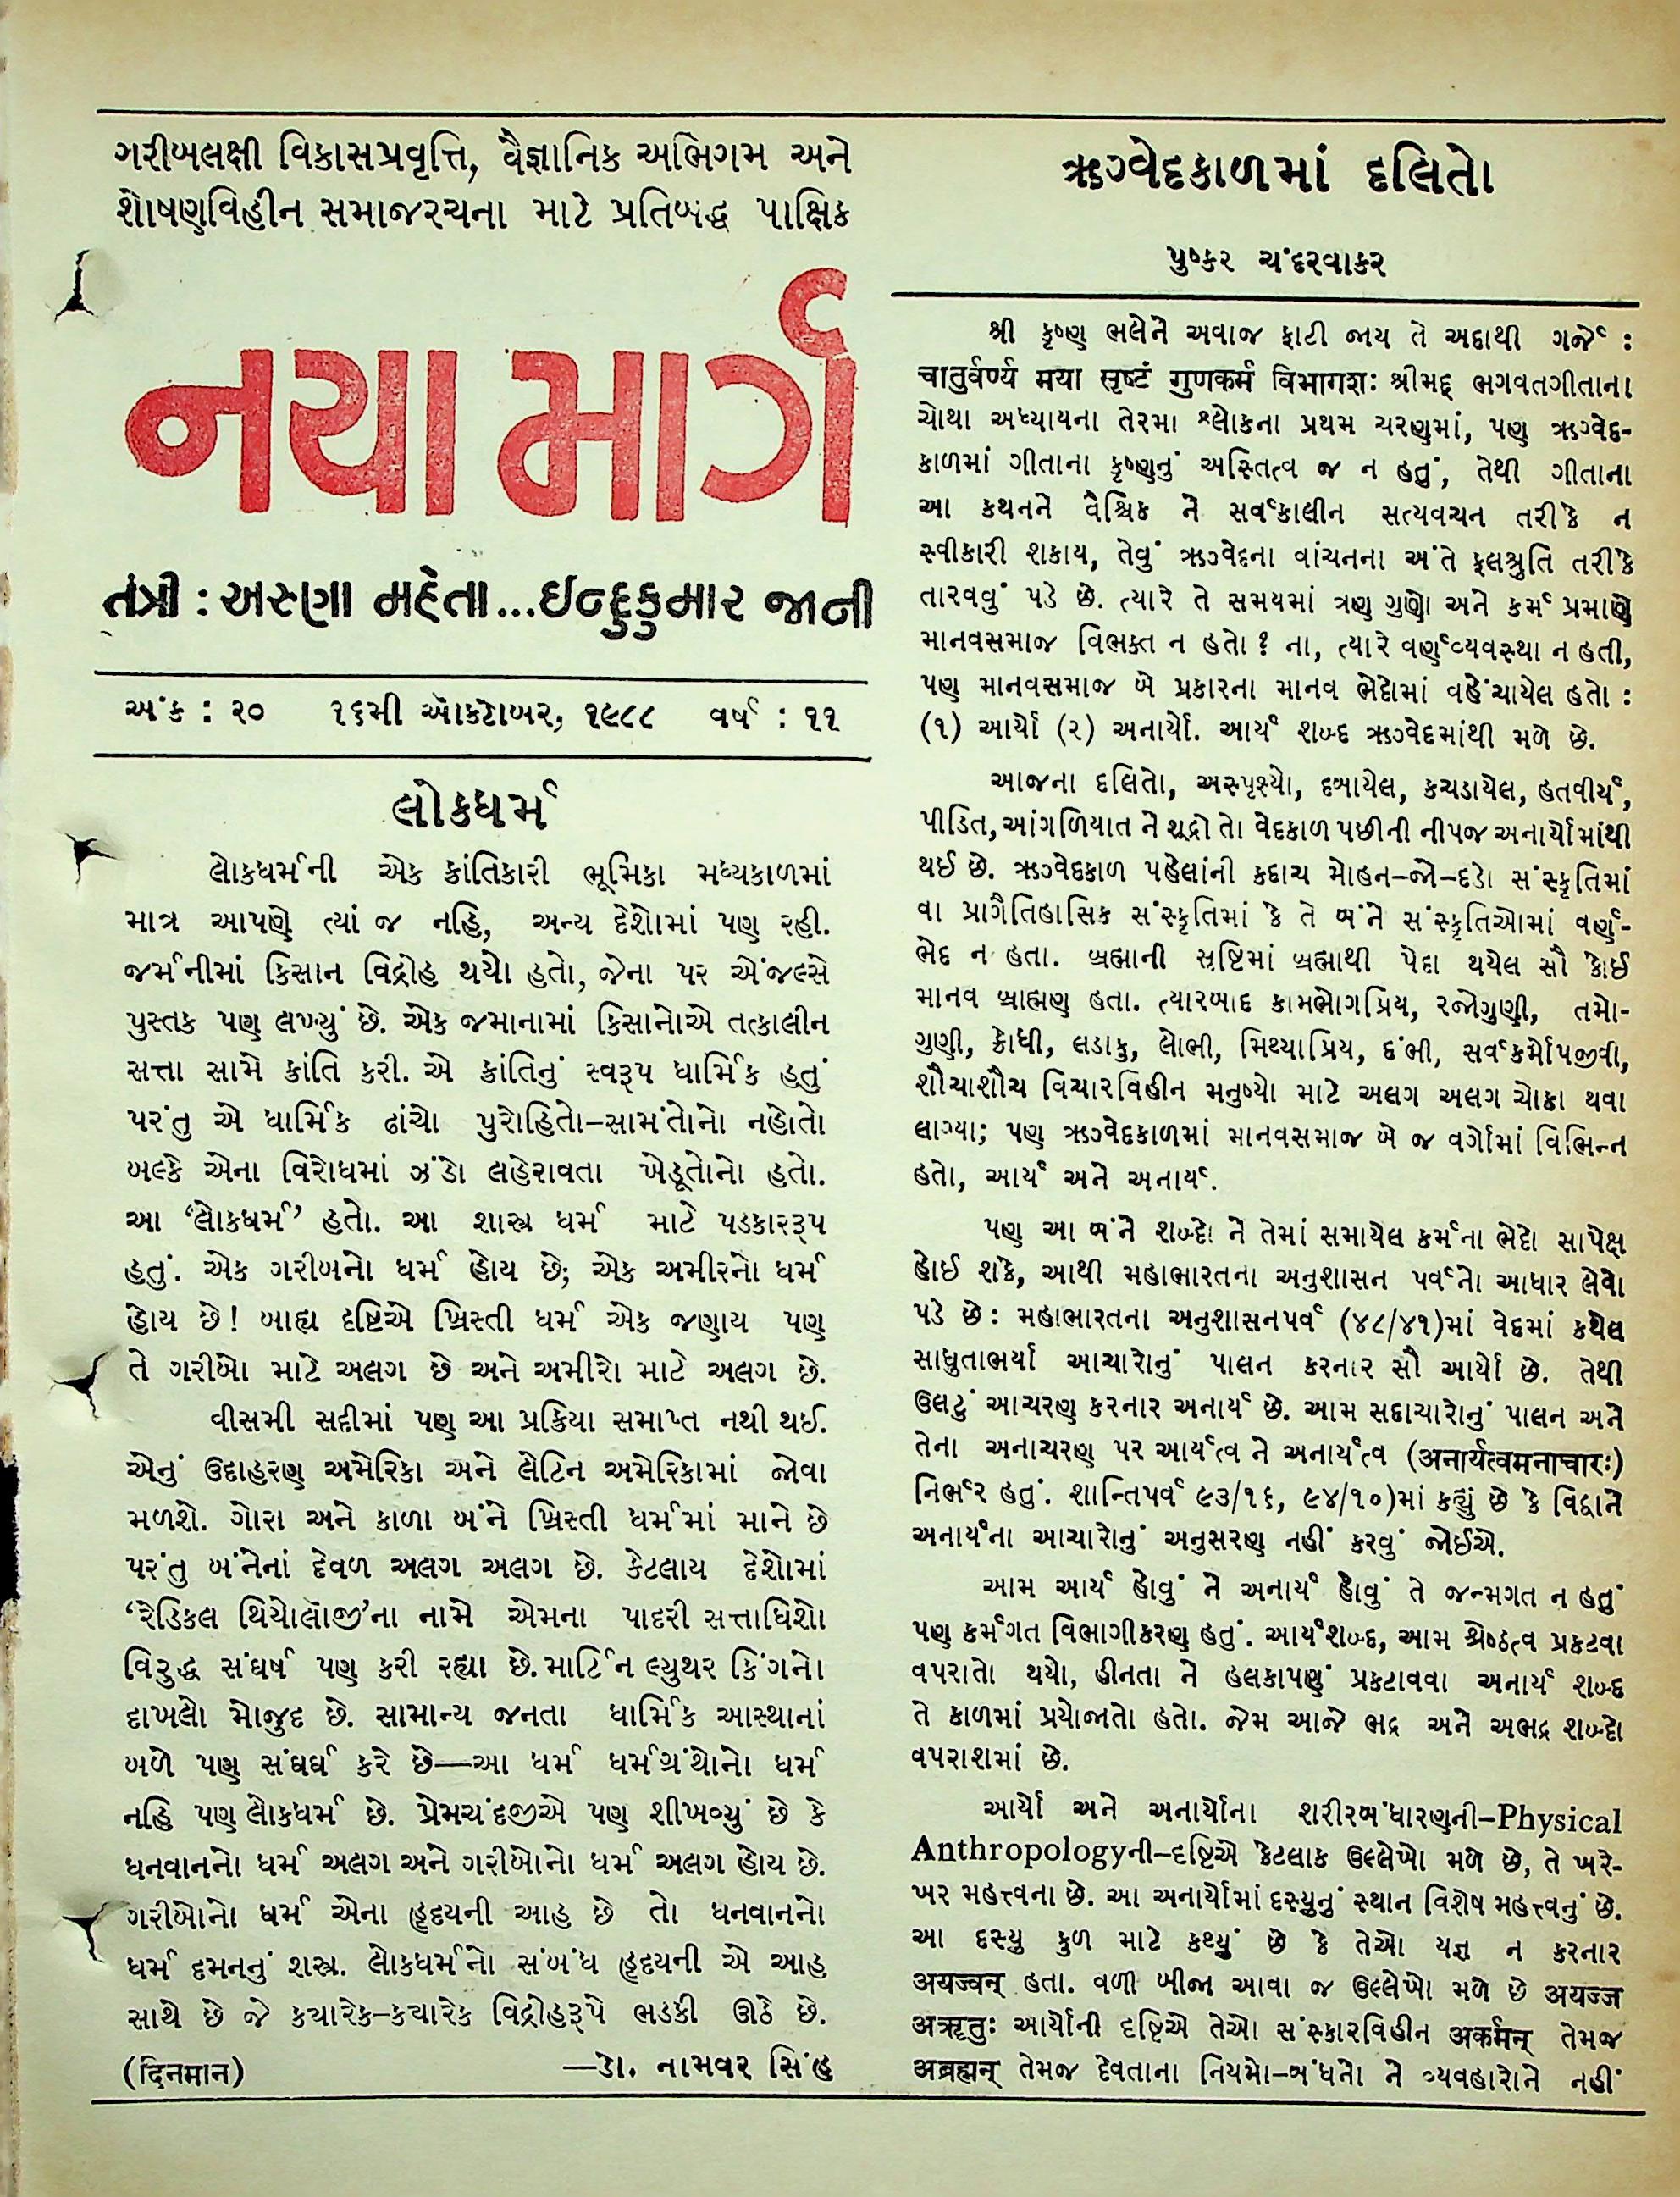 ગરીબલક્ષી વિકાસપ્રવૃત્તિ, વૈજ્ઞાનિક અભિગમ અને
શોષણવિહીન સમાજરચના માટે પ્રતિબદ્ધ પાક્ષિક
નયા માર્ગ
તંત્રી : અરુણા મહેતા...ઇન્દુકુમાર જાની
અંક : ૨૦ ૧૬મી ઑકટોબર, ૧૯૮૮ વર્ષ : ૧૧
લોકધર્મ
લોકધર્મની એક ક્રાંતિકારી ભૂમિકા મધ્યકાળમાં
માત્ર આપણે ત્યાં જ નહિ, અન્ય દેશોમાં પણ રહી.
જર્મનીમાં કિસાન વિદ્રોહ થયો હતો, જેના પર એંજલ્સે
પુસ્તક પણ લખ્યું છે. એક જમાનામાં કિસાનોએ તત્કાલીન
સત્તા સામે ક્રાંતિ કરી. એ ક્રાંતિનું સ્વરૂપ ધાર્મિક હતું
પરંતુ એ ધાર્મિક ઢાંચો પુરોહિતો–સામંતોનો નહોતો
બલ્કે એના વિરોધમાં ઝંડો લહેરાવતા ખેડૂતોનો હતો.
આ ‘લોકધર્મ’ હતો. આ શાસ્ત્ર ધર્મ માટે પડકારરૂપ
હતું. એક ગરીબનો ધર્મ હોય છે; એક અમીરનો ધર્મ
હોય છે! બાહ્ય દૃષ્ટિએ ખ્રિસ્તી ધર્મ એક જણાય પણ
તે ગરીબો માટે અલગ છે અને અમીરો માટે અલગ છે.
વીસમી સદીમાં પણ આ પ્રક્રિયા સમાપ્ત નથી થઈ.
એનું ઉદાહરણ અમેરિકા અને લેટિન અમેરિકામાં જોવા
મળશે. ગોરા અને કાળા બંને ખ્રિસ્તી ધર્મમાં માને છે
પરંતુ બંનેનાં દેવળ અલગ અલગ છે. કેટલાય દેશોમાં
‘રેડિકલ થિયોલૉજી’ના નામે એમના પાદરી સત્તાધિશો
વિરુદ્ધ સંઘર્ષ પણ કરી રહ્યા છે. માર્ટિન લ્યુથર કિંગનો
દાખલો મોજુદ છે. સામાન્ય જનતા ધાર્મિક આસ્થાનાં
બળે પણ સંઘર્ષ કરે છે—આ ધર્મ ધર્મગ્રંથોનો ધર્મ
નહિ પણ લોકધર્મ છે. પ્રેમચંદજીએ પણ શીખવ્યું છે કે
ધનવાનનો ધર્મ અલગ અને ગરીબોનો ધર્મ અલગ હોય છે.
ગરીબોનો ધર્મ એના હૃદયની આહ છે તો ધનવાનનો
ધર્મ દમનનું શસ્ત્ર. લોકધર્મનો સંબંધ હૃદયની એ આહ
સાથે છે જે કયારેક-કયારેક વિદ્રોહરૂપે ભડકી ઊઠે છે.
(દिनमान) —ડો. નામવર સિંહ
ઋગ્વેદકાળમાં દલિતો
પુષ્કર ચંદરવાકર
શ્રી કૃષ્ણ ભલેને અવાજ ફાટી જાય તે અદાથી ગર્જે :
चातुर्वर्ण्य मया सृष्टं गुणकर्म विभागशः શ્રીમદ્ ભગવતગીતાના
ચોથા અધ્યાયના તેરમા શ્લોકના પ્રથમ ચરણમાં, પણ ઋગ્વેદ-
કાળમાં ગીતાના કૃષ્ણનું અસ્તિત્વ જ ન હતું, તેથી ગીતાના
આ કથનને વૈશ્વિક ને સર્વકાલીન સત્યવચન તરીકે ન
સ્વીકારી શકાય, તેવું ઋગ્વેદના વાંચનના અંતે ફલશ્રુતિ તરીકે
તારવવું પડે છે. ત્યારે તે સમયમાં ત્રણ ગુણો અને કર્મ પ્રમાણે
માનવસમાજ વિભક્ત ન હતો? ના, ત્યારે વર્ણવ્યવસ્થા ન હતી,
પણ માનવસમાજ બે પ્રકારના માનવ ભેદોમાં વહેંચાયેલ હતો :
(૧) આર્યો (૨) અનાર્યો. આર્ય શબ્દ ઋગ્વેદમાંથી મળે છે.
આજના દલિતો, અસ્પૃશ્યો, દબાયેલ, કચડાયેલ, હતવીર્ય,
પીડિત, આંગળિયાત ને શૂદ્રો તો વેદકાળ પછીની નીપજ અનાર્યોમાંથી
થઈ છે. ઋગ્વેદકાળ પહેલાંની કદાચ મોહન-જો-દડો સંસ્કૃતિમાં
વા પ્રાગૈતિહાસિક સંસ્કૃતિમાં કે તે બંને સંસ્કૃતિઓમાં વર્ણ-
ભેદ ન હતા. બ્રહ્માની સૃષ્ટિમાં બ્રહ્માથી પેદા થયેલ સૌ કોઈ
માનવ બ્રાહ્મણ હતા. ત્યારબાદ કામભોગપ્રિય, રજોગુણી, તમો-
ગુણી, ક્રોધી, લડાકુ, લોભી, મિથ્યાપ્રિય, દંભી, સર્વકર્મોપજીવી,
શૌચાશૌચ વિચારવિહીન મનુષ્યો માટે અલગ અલગ ચોકા થવા
લાગ્યા; પણ ઋગ્વેદકાળમાં માનવસમાજ બે જ વર્ગોમાં વિભિન્ન
હતો, આર્ય અને અનાર્ય.
પણ આ બંને શબ્દો ને તેમાં સમાયેલ કર્મના ભેદો સાપેક્ષ
હોઈ શકે, આથી મહાભારતના અનુશાસન પર્વનો આધાર લેવો
પડે છે: મહાભારતના અનુશાસનપર્વ (૪૮/૪૧)માં વેદમાં કથેલ
સાધુતાભર્યા આચારોનું પાલન કરનાર સૌ આર્યો છે. તેથી
ઉલટું આચરણ કરનાર અનાર્ય છે. આમ સદાચારોનું પાલન અને
તેના અનાચરણ પર આર્યત્વ ને અનાર્યત્વ (अनार्यत्वमनाचारः)
નિર્ભર હતું. શાન્તિપર્વ ૯૩/૧૬, ૯૪/૧૦)માં કહ્યું છે કે વિદ્વાને
અનાર્યના આચારોનું અનુસરણ નહીં કરવું જોઈએ.
આમ આર્ય હોવું ને અનાર્ય હોવું તે જન્મગત ન હતું
પણ કર્મગત વિભાગીકરણ હતું. આર્યશબ્દ, આમ શ્રેષ્ઠત્વ પ્રકટવા
વપરાતો થયો, હીનતા ને હલકાપણું પ્રકટાવવા અનાર્ય શબ્દ
તે કાળમાં પ્રયોજાતો હતો. જેમ આજે ભદ્ર અને અભદ્ર શબ્દો
વપરાશમાં છે.
આર્યો અને અનાર્યોના શરીરબંધારણની–Physical
Anthropologyની–દૃષ્ટિએ કેટલાક ઉલ્લેખો મળે છે, તે ખરે-
ખર મહત્ત્વના છે. આ અનાર્યોમાં દસ્યુનું સ્થાન વિશેષ મહત્ત્વનું છે.
આ દસ્યુ કુળ માટે કથ્યું છે કે તેઓ યજ્ઞ ન કરનાર
अयज्वन् હતા. વળી બીજા આવા જ ઉલ્લેખો મળે છે अयज्ज
अऋतुः આર્યોની દૃષ્ટિએ તેઓ સંસ્કારવિહીન अकर्मन् તેમજ
अब्रह्मन् તેમજ દેવતાના નિયમો-બંધનો ને વ્યવહારોને નહીં